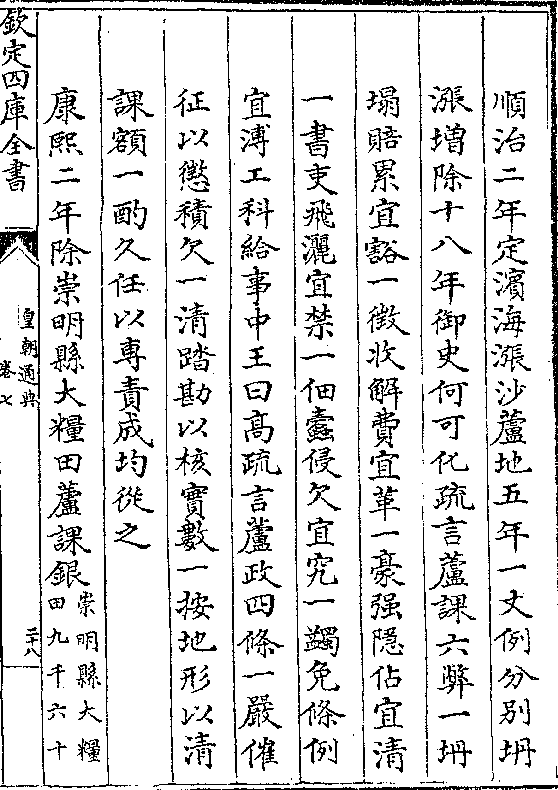 順治二年定濱海漲沙蘆地五年一丈例分别坍
漲増除十八年御史何可化疏言蘆課六弊一坍
塌賠累宜豁一徴收解費宜革一豪强隠佔宜清
一書吏飛灑宜禁一佃蠧侵欠宜究一蠲免條例
宜溥工科給事中王曰髙疏言蘆政四條一嚴催
征以懲積欠一清踏勘以核實數一按地形以清
課額一酌久任以専責成均從之
康熙二年除崇明縣大糧田蘆課銀崇明縣大糧
田九千六十
欽定四庫全書
皇朝通典
卷七
三十八